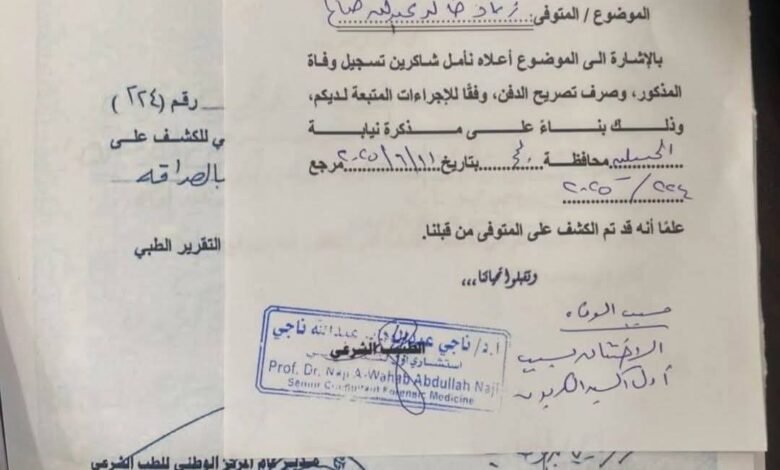 الموضوع / المتوفى
بالإشارة الى الموضوع أعلاه نأمل شاكرين تسجيل وفاة
المذكور، وصرف تصريح الدفن، وفقًا للإجراءات المتبعة لديكم،
وذلك بناءً على مذكرة نيابة
محافظة بتاريخ ٢٠٢٥/٦/١١ مرجع
٢٢٤/٢٠٢٥
علمًا أنه قد تم الكشف على المتوفى من قبلنا.
وتقبلوا تحياتنا,,,
سبب الوفاه
الاختناق بسبب
أول اكسيد الكربون
ا.د/ ناجي عبدالله ناجي
الطبيب الشرعي
استشاري
Prof. Dr. Naji A-Wahab Abdullah Naji
Senior Consultant Forensic Medicine
رقم (٢٢٤)
ي للكشف على
التقرير الطبي
مدير عام المركز الوطني للطب الشرعي